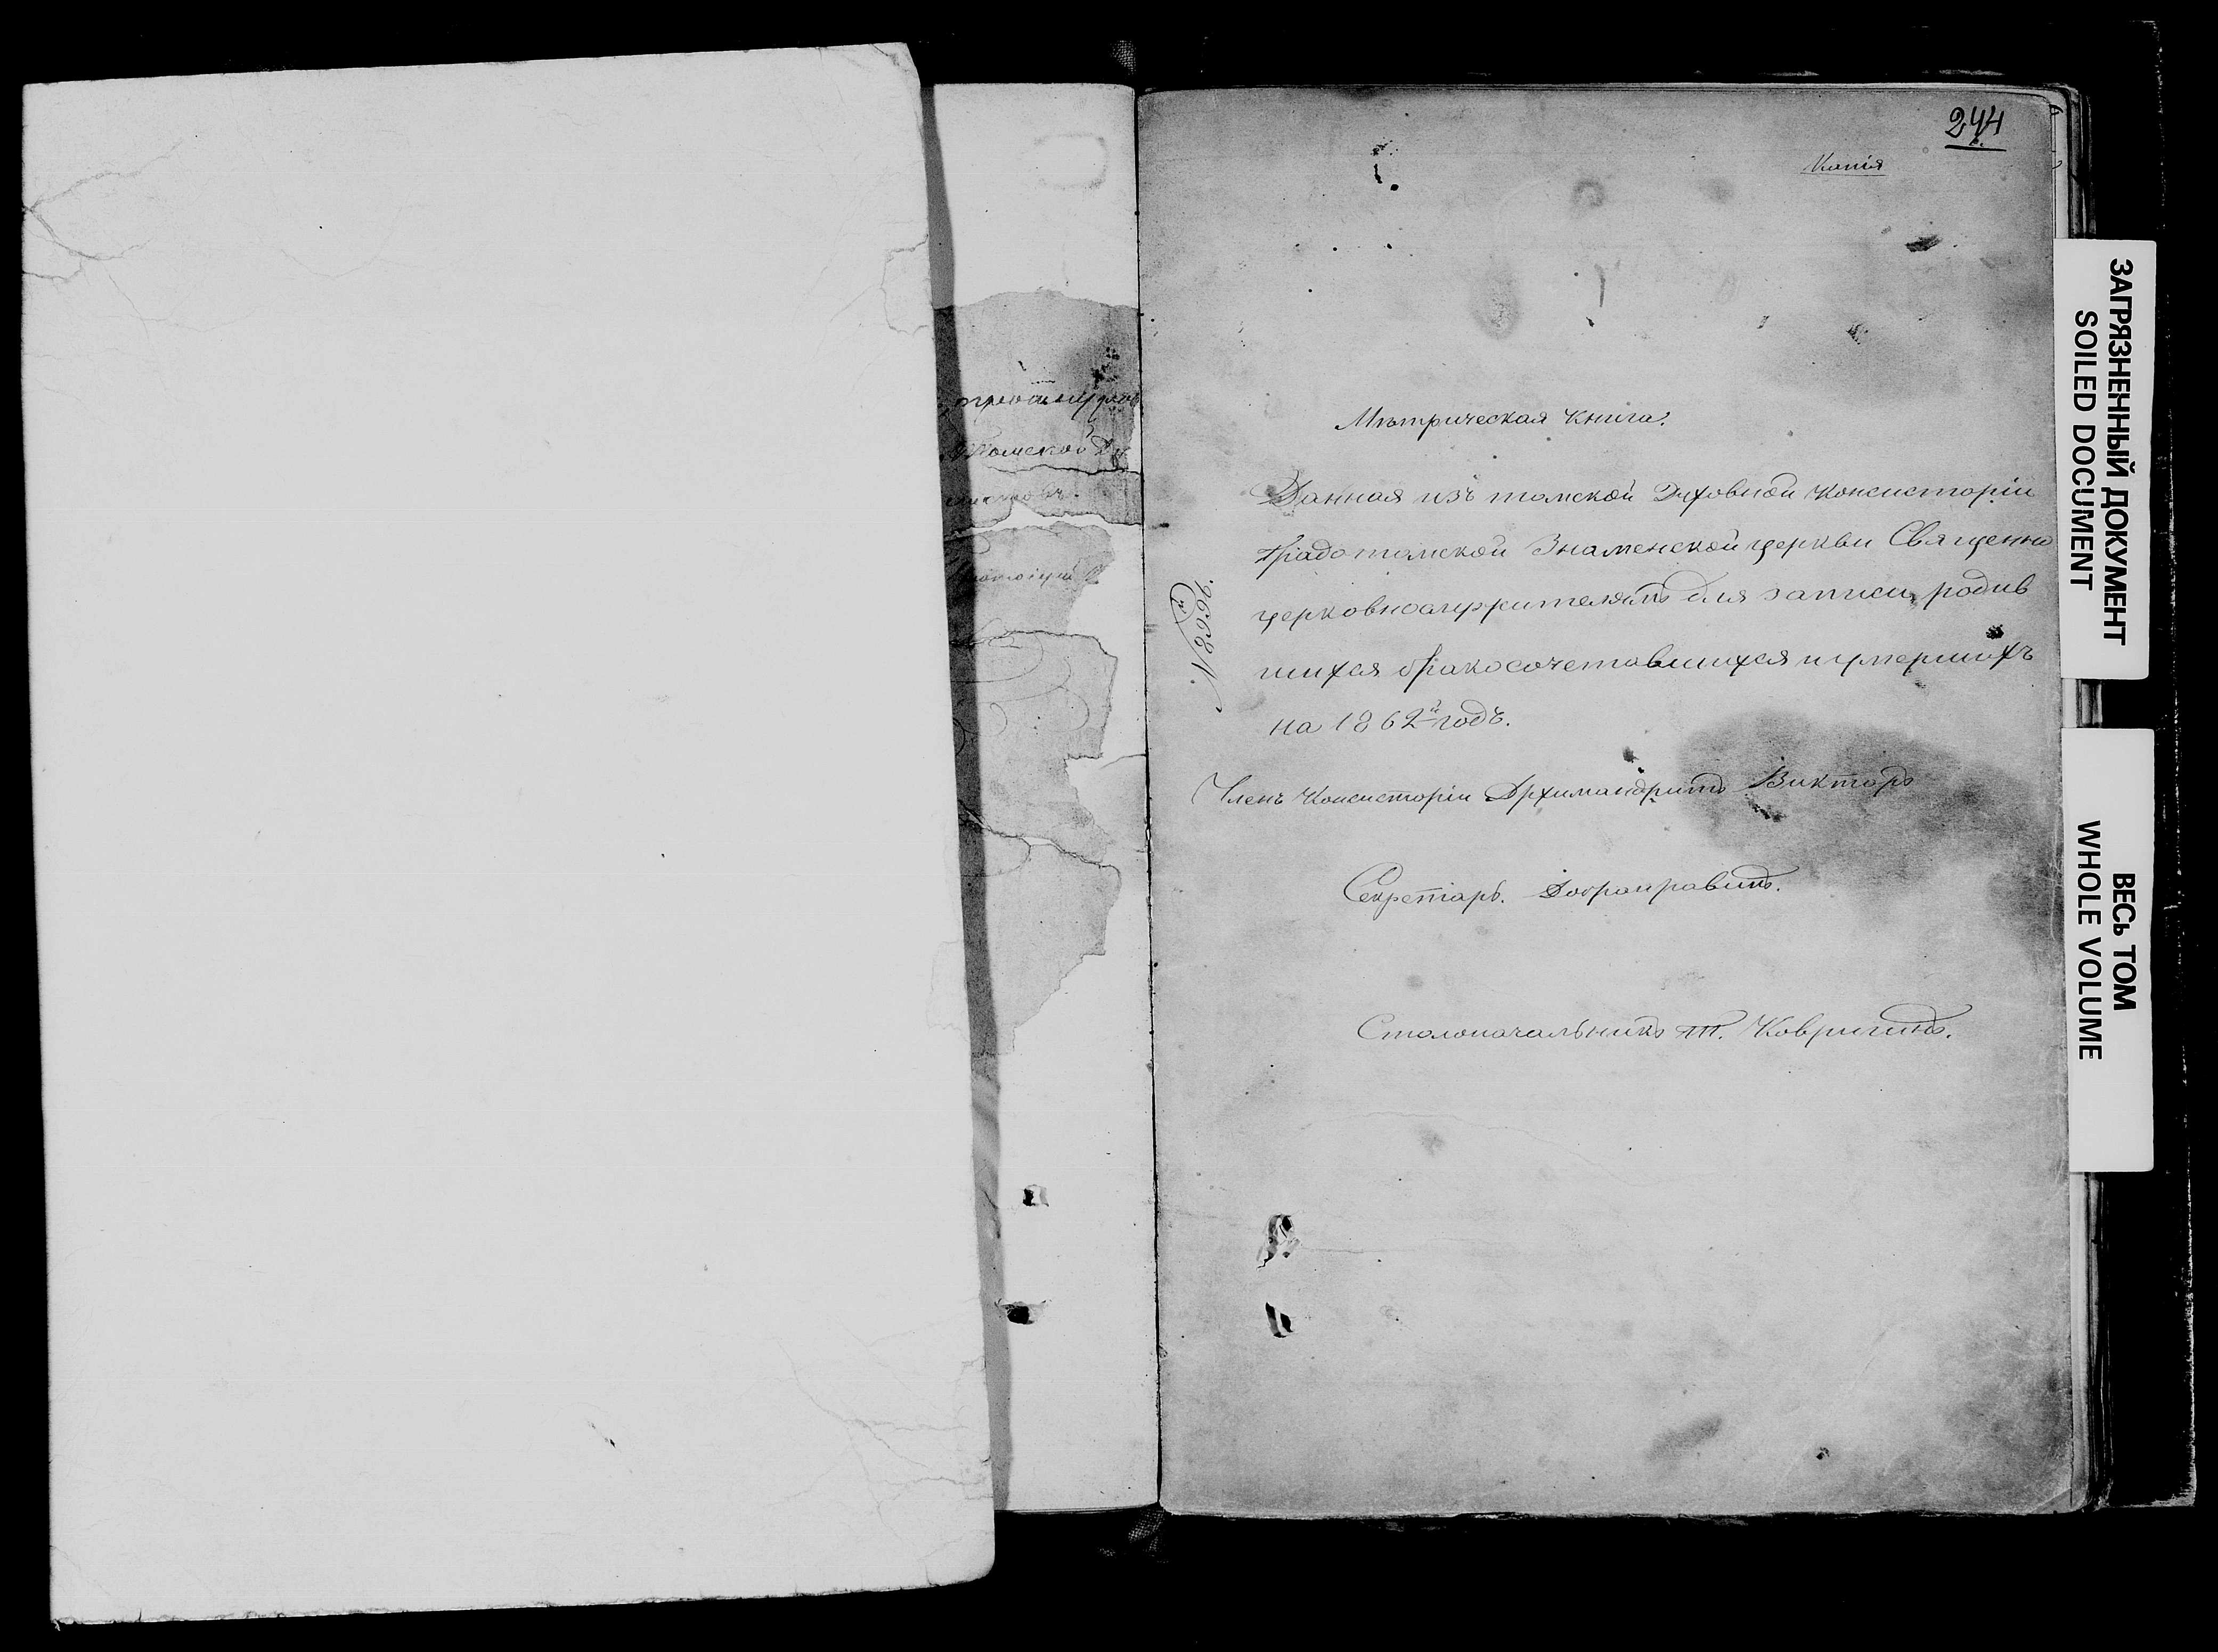 244
Копія
Мѣтрическая Книга.
Данная изъ томской Духовной Консисторіи
Градотомской Знаменской церкви Священно
церковнослужителямъ для записи родив
шихся бракосочетавшихся и умершихъ
на 1862й годъ.
№ 8996.
Членъ Консисторіи Архимандритъ Викторъ
Секретарь. Добронравинъ.
Столоначальникъ Ковригинъ.
Томской Ду
ЗАГРЯЗНЕННЫЙ ДОКУМЕНТ
SOILED DOCUMENT
ВЕСЬ ТОМ
WHOLE VOLUME